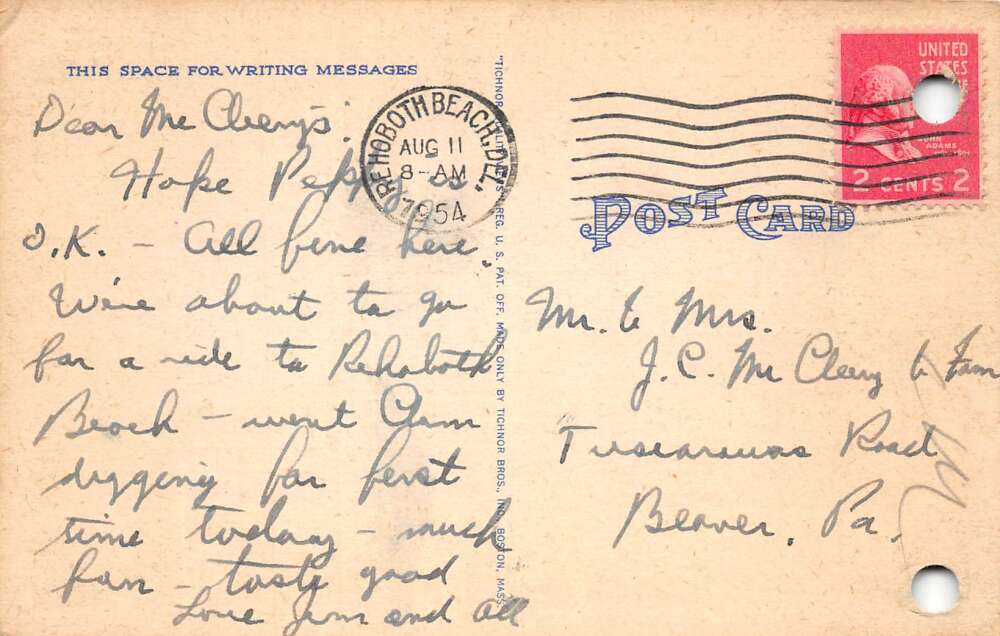 THIS SPACE FOR WRITING MESSAGES
Dear Mc Cleery's,
Hope Pepper is
O.K. - All fine here.
We're about to go
for a ride to Rehoboth
Beach - went Clam
digging for first
time today - much
fun - taste good
Love Jim and All
REHOBOTH BEACH, DEL.
AUG 11
8-AM
1954
REG. U. S. PAT. OFF. MADE ONLY BY TICHNOR BROS., INC. BOSTON, MASS.
UNITED
STATES
JOHN
ADAMS
2 CENTS 2
POST CARD
Mr. & Mrs.
J. C. Mc Cleery & Fam
Tuscarawas Road
Beaver, Pa.